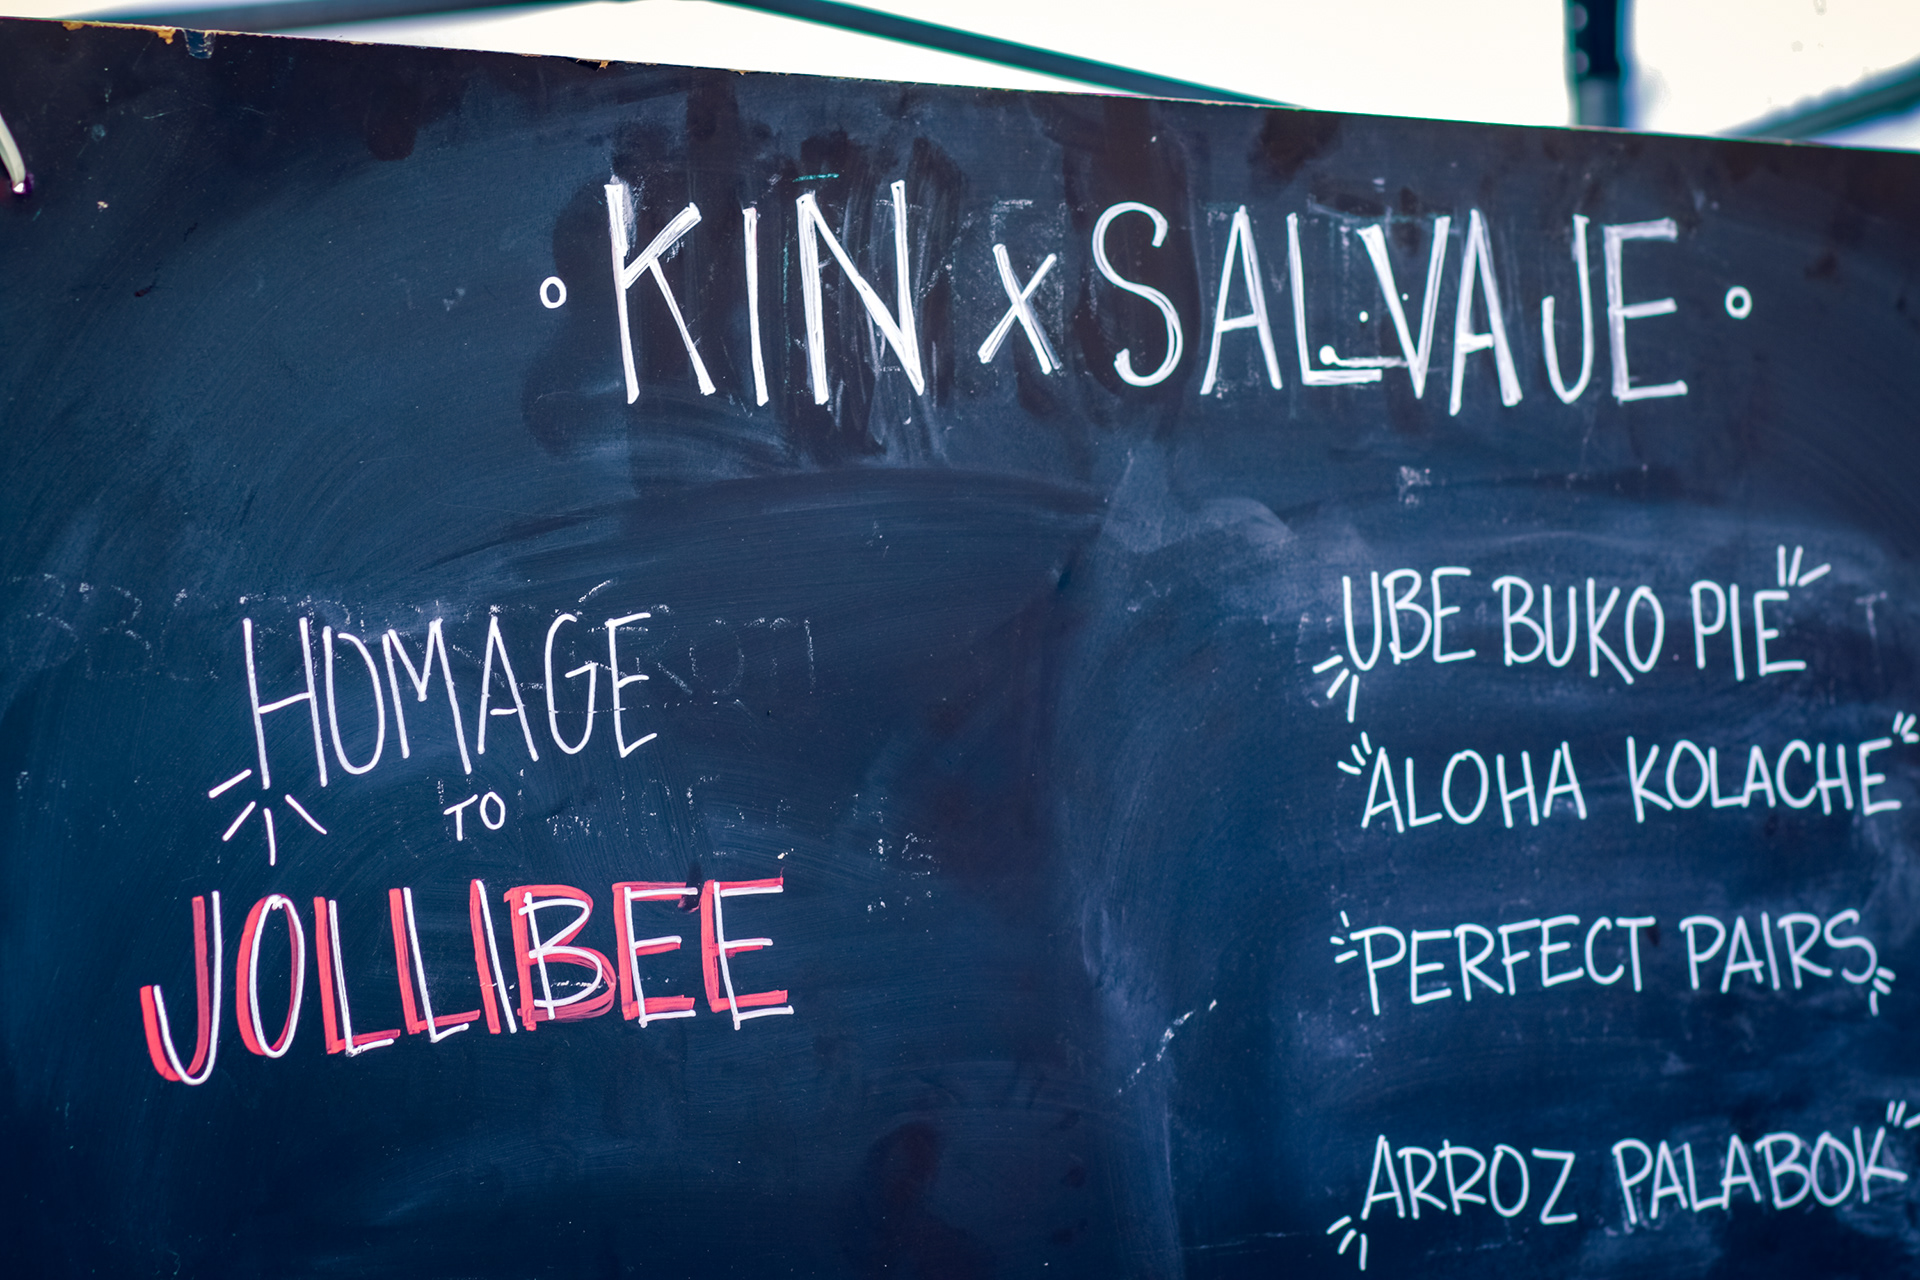 KIN x SALVAJE
HOMAGE
TO
JOLLIBEE
UBE BUKO PIE
ALOHA KOLACHE
PERFECT PAIRS
ARROZ PALABOK